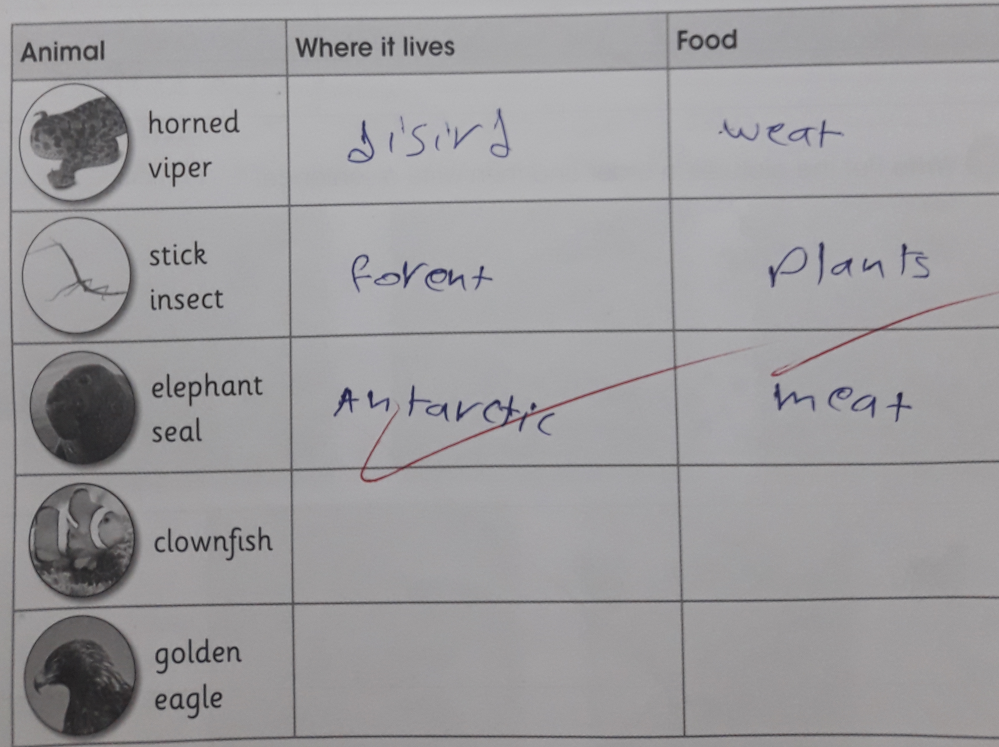 Animal Where it lives Food
horned
viper
disird
weat
stick
insect
forent
plants
elephant
seal
Antarctic
meat
clownfish
golden
eagle